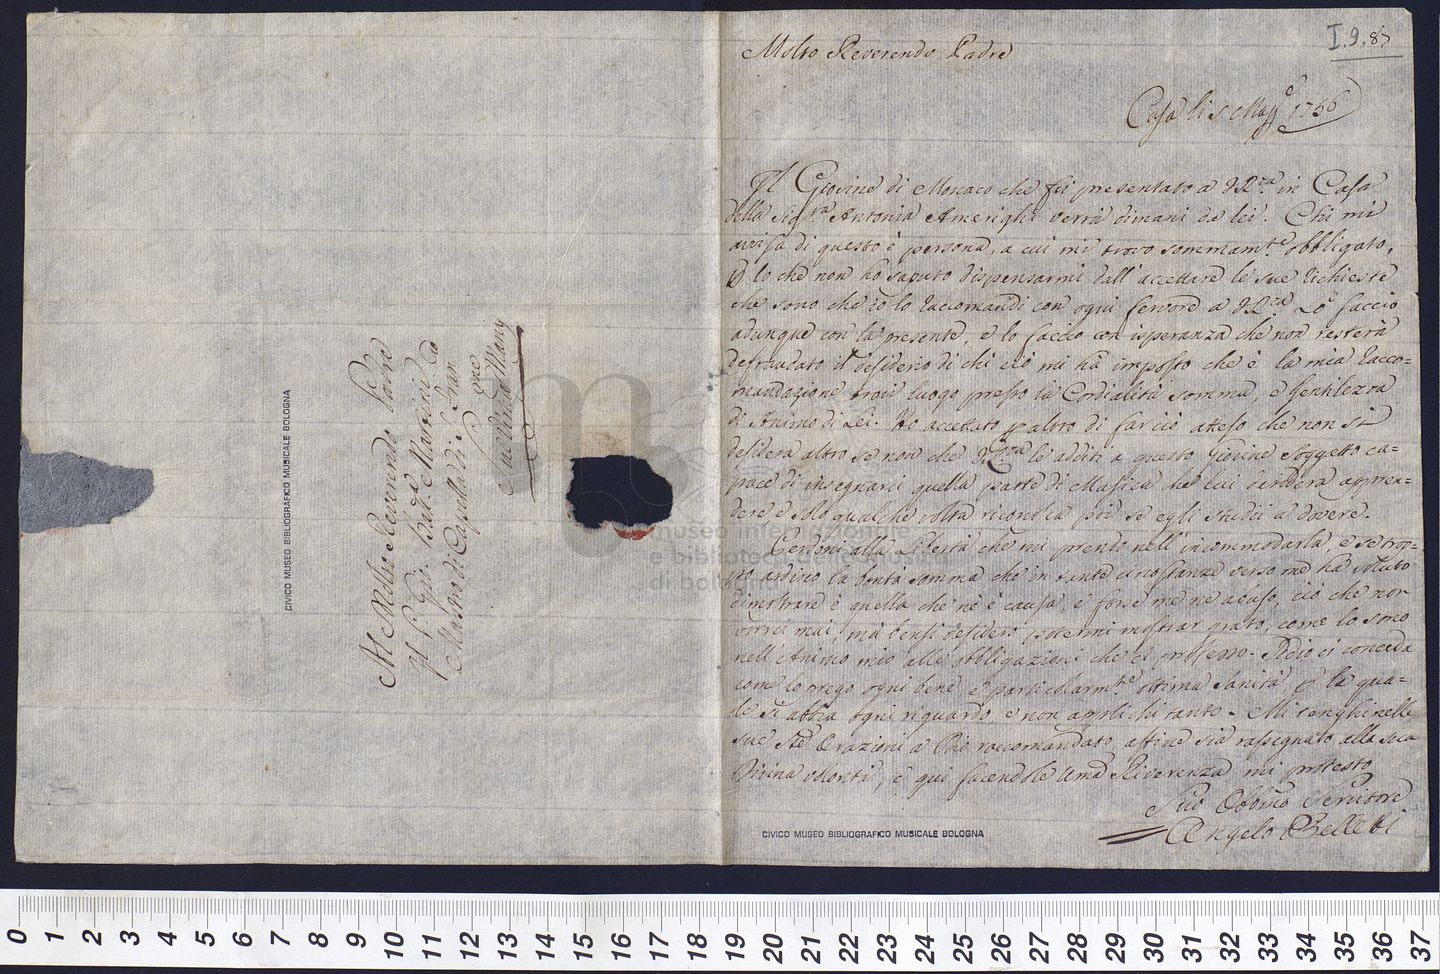 I.9.87
Molto Reverendo Padre
Casa li 5 Magg.e 1756
Il Giovine di Monaco che fù presentato a V.R.za in Casa
della Sig.ra Antonia Amerighi verrà dimani da lei. Chi mi
avisa di questo è persona, a cui mi trovo sommam.te obbligato,
lo che non ho saputo dispensarmi dall'accettare le sue richieste
che sono che io lo raccomandi con ogni fervore a V.R.za Lo faccio
adunque con la presente, e lo faccio con isperanza che non resterà
defraudato il desiderio di chi ciò mi hà imposto che è la mia racco=
mandazione trovi luogo presso la Cordialità somma, e Gentilezza
di Animo di Lei. Ho accettato di farciò atteso che non si
desidera altro se non che V.R.za le additi a questo Giovine Soggetto ca=
pace di insegnarli quella parte di Musica che lui desidera appren=
dere e solo qualche volta riconosca poi se egli studii a dovere.
Perdoni alla Libertà che mi prendo nell'incommodarla, e se trop=
po ardisco la bontà somma che in tante circostanze verso me ha voluto
dimostrare è quella che nè è causa, e forse me ne acuso, ciò che non
vorrei mai, mà bensì desidero potermi mostrar grato, come lo sono
nell'Animo mio alle obbligazioni che ci professo. Iddio ci conceda
come lo prego ogni bene, e particolarm.te ottima Sanità la qua=
le si abbia ogni riguardo, e non applichi tanto. Mi tenghi nelle
sue Ste Orazioni a Dio raccomandato affine sia rassegnato alla sua
Divina volontà, e qui facendole Uma Riverenza mi protesto
Suo Obbmo Servitore
Angelo Belletti
Al Molto Reverendo Padre
Il P. Gio: Batt.a Martini
Mastro di Capella di S. Fran.co
CIVICO MUSEO BIBLIOGRAFICO MUSICALE BOLOGNA
CIVICO MUSEO BIBLIOGRAFICO MUSICALE BOLOGNA
museo internazionale
e biblioteca della musica
di bologna
0 1 2 3 4 5 6 7 8 9 10 11 12 13 14 15 16 17 18 19 20 21 22 23 24 25 26 27 28 29 30 31 32 33 34 35 36 37